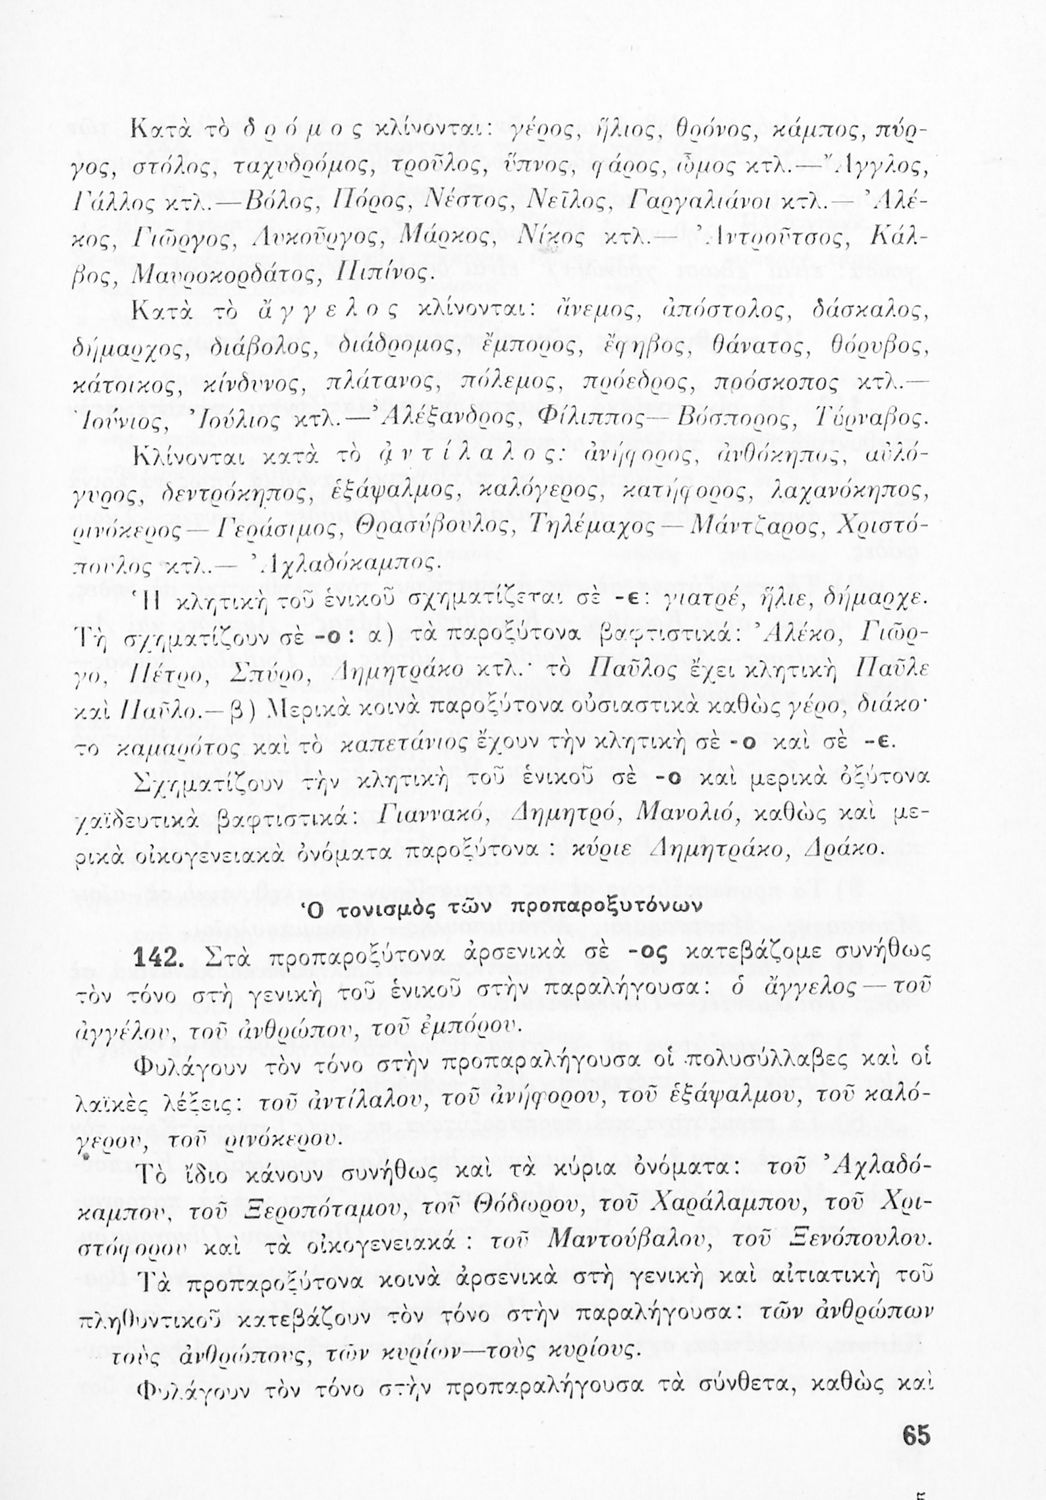 Κατὰ τὸ δρόμος κλίνονται: γέρος, ἥλιος, θρόνος, κάμπος, πύρ-
γος, στόλος, ταχυδρόμος, τροῦλος, ὕπνος, φάρος, ὦμος κτλ.—Ἄγγλος,
Γάλλος κτλ.—Βόλος, Πόρος, Νέστος, Νεῖλος, Γαργαλιάνοι κτλ.— Ἀλέ-
κος, Γιῶργος, Λυκοῦργος, Μάρκος, Νίκος κτλ.— Ἀντροῦτσος, Κάλ-
βος, Μαυροκορδάτος, Πιπίνος.
Κατὰ τὸ ἄγγελος κλίνονται: ἄνεμος, ἀπόστολος, δάσκαλος,
δήμαρχος, διάβολος, διάδρομος, ἔμπορος, ἔφηβος, θάνατος, θόρυβος,
κάτοικος, κίνδυνος, πλάτανος, πόλεμος, πρόεδρος, πρόσκοπος κτλ.—
Ἰούνιος, Ἰούλιος κτλ.—Ἀλέξανδρος, Φίλιππος—Βόσπορος, Τύρναβος.
Κλίνονται κατὰ τὸ ἀντίλαλος: ἀνήφορος, ἀνθόκηπος, αὐλό-
γυρος, δεντρόκηπος, ἑξάψαλμος, καλόγερος, κατήφορος, λαχανόκηπος,
ρινόκερος—Γεράσιμος, Θρασύβουλος, Τηλέμαχος—Μάντζαρος, Χριστό-
πουλος κτλ.— Ἀχλαδόκαμπος.
Ἡ κλητικὴ τοῦ ἑνικοῦ σχηματίζεται σὲ -ε: γιατρέ, ἥλιε, δήμαρχε.
Τὴ σχηματίζουν σὲ -ο: α) τὰ παροξύτονα βαφτιστικά: Ἀλέκο, Γιῶρ-
γο, Πέτρο, Σπύρο, Δημητράκο κτλ.· τὸ Παῦλος ἔχει κλητικὴ Παῦλε
καὶ Παῦλο.—β) Μερικὰ κοινὰ παροξύτονα οὐσιαστικὰ καθὼς γέρο, διάκο·
το καμαρότος καὶ τὸ καπετάνιος ἔχουν τὴν κλητικὴ σὲ -ο καὶ σὲ -ε.
Σχηματίζουν τὴν κλητικὴ τοῦ ἑνικοῦ σὲ -ο καὶ μερικὰ ὀξύτονα
χαϊδευτικὰ βαφτιστικά: Γιαννακό, Δημητρό, Μανολιό, καθὼς καὶ με-
ρικὰ οἰκογενειακὰ ὀνόματα παροξύτονα : κύριε Δημητράκο, Δράκο.
Ὁ τονισμὸς τῶν προπαροξυτόνων
142. Στὰ προπαροξύτονα ἀρσενικὰ σὲ -ος κατεβάζομε συνήθως
τὸν τόνο στὴ γενικὴ τοῦ ἑνικοῦ στὴν παραλήγουσα: ὁ ἄγγελος—τοῦ
ἀγγέλου, τοῦ ἀνθρώπου, τοῦ ἐμπόρου.
Φυλάγουν τὸν τόνο στὴν προπαραλήγουσα οἱ πολυσύλλαβες καὶ οἱ
λαϊκὲς λέξεις: τοῦ ἀντίλαλου, τοῦ ἀνήφορου, τοῦ ἑξάψαλμου, τοῦ καλό-
γερου, τοῦ ρινόκερου.
Τὸ ἴδιο κάνουν συνήθως καὶ τὰ κύρια ὀνόματα: τοῦ Ἀχλαδό-
καμπου, τοῦ Ξεροπόταμου, τοῦ Θόδωρου, τοῦ Χαράλαμπου, τοῦ Χρι-
στόφορου καὶ τὰ οἰκογενειακά : τοῦ Μαντούβαλου, τοῦ Ξενόπουλου.
Τὰ προπαροξύτονα κοινὰ ἀρσενικὰ στὴ γενικὴ καὶ αἰτιατικὴ τοῦ
πληθυντικοῦ κατεβάζουν τὸν τόνο στὴν παραλήγουσα: τῶν ἀνθρώπων
τοὺς ἀνθρώπους, τῶν κυρίων—τοὺς κυρίους.
Φυλάγουν τὸν τόνο στὴν προπαραλήγουσα τὰ σύνθετα, καθὼς καὶ
65
5